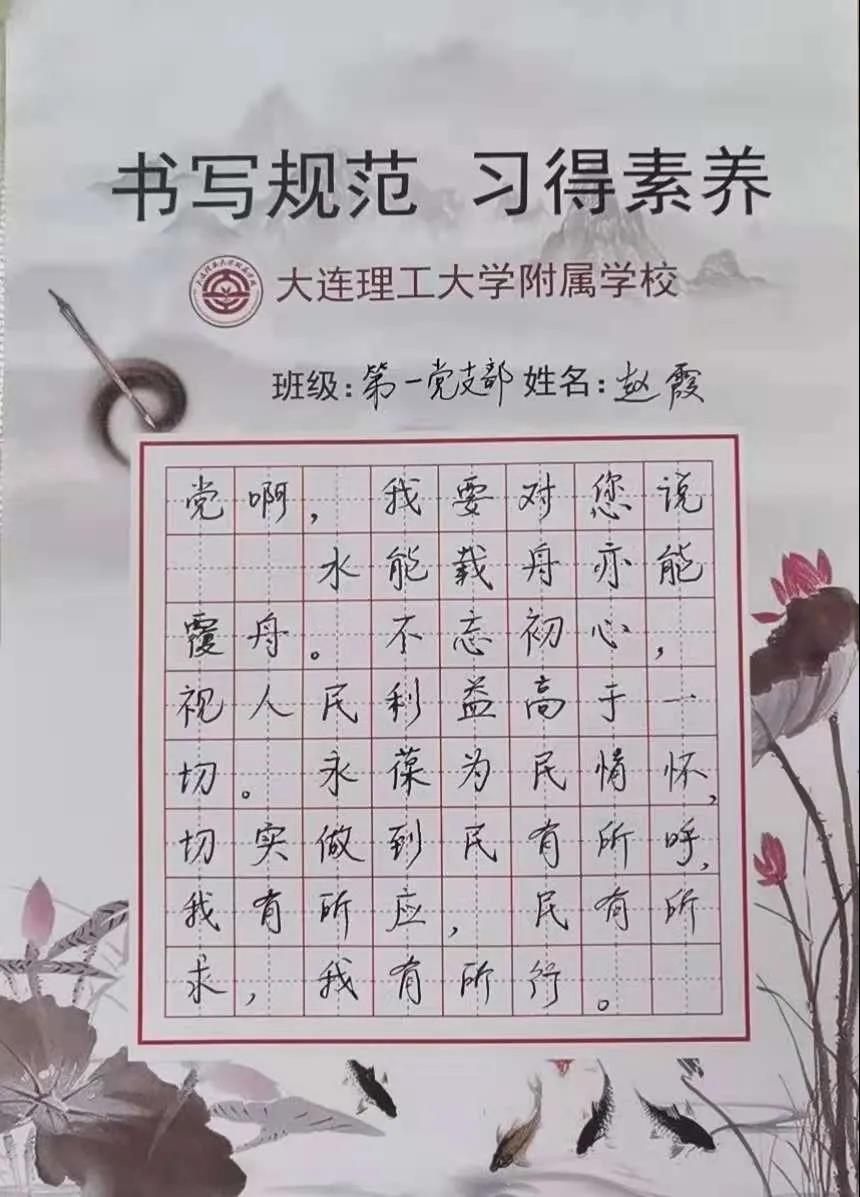 书写规范 习得素养
大连理工大学附属学校
班级:第一党支部 姓名:赵霞
党啊，我要对您说
水能载舟亦能
覆舟。不忘初心，
视人民利益高于一
切。永葆为民情怀，
切实做到民有所呼，
我有所应，民有所
求，我有所行。